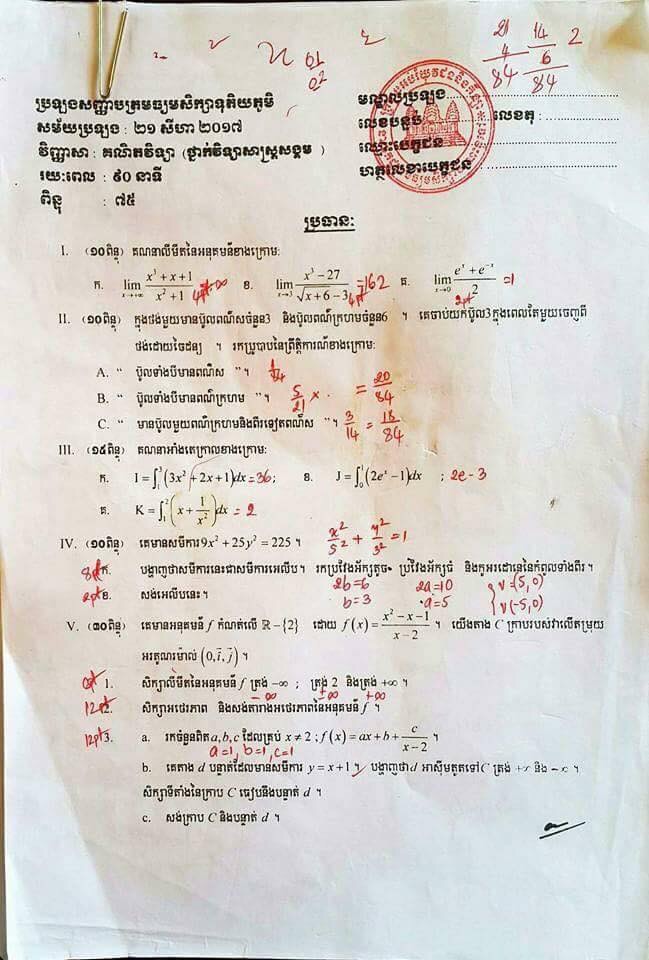 21 14 2
4 6
84 84
ប្រឡងសញ្ញាបត្រមធ្យមសិក្សាទុតិយភូមិ
សម័យប្រឡង : ២១ សីហា ២០១៧
វិញ្ញាសា : គណិតវិទ្យា (ថ្នាក់វិទ្យាសាស្ត្រសង្គម )
រយៈពេល : ៩០ នាទី
ពិន្ទុ : ៧៥
មណ្ឌលប្រឡង
លេខបន្ទប់ លេខតុ :
ឈ្មោះបេក្ខជន
ហត្ថលេខាបេក្ខជន
ប្រធាន:
I. (១០ពិន្ទុ) គណនាលីមីតនៃអនុគមន៍ខាងក្រោម:
ក. lim x→+∞ (x³+x+1)/(x²+1) 4pt +∞ ខ. lim x→3 (x³−27)/(√(x+6)−3) =162 4pt គ. lim x→0 (eˣ+e⁻ˣ)/2 =1 2pt
II. (១០ពិន្ទុ) ក្នុងថង់មួយមានប៊ូលពណ៌សចំនួន3 និងប៊ូលពណ៌ក្រហមចំនួន6 ។ គេចាប់យកប៊ូល3ក្នុងពេលតែមួយចេញពី
ថង់ដោយចៃដន្យ ។ រកប្រូបាបនៃព្រឹត្តិការណ៍ខាងក្រោម:
A. “ ប៊ូលទាំងបីមានពណ៌ស ”។ 1/84
B. “ ប៊ូលទាំងបីមានពណ៌ក្រហម ”។ 5/21 × . = 20/84
C. “ មានប៊ូលមួយពណ៌ក្រហមនិងពីរទៀតពណ៌ស ”។ 3/14 = 18/84
III. (១៥ពិន្ទុ) គណនាអាំងតេក្រាលខាងក្រោម:
ក. I=∫₁³(3x²+2x+1)dx =36; ខ. J=∫₀¹(2eˣ−1)dx ; 2e-3
គ. K=∫₁²(x+1/x²)dx = 2
IV. (១០ពិន្ទុ) គេមានសមីការ 9x²+25y²=225 ។ x²/5² + y²/3² =1
8pt ក. បង្ហាញថាសមីការនេះជាសមីការអេលីប។ រកប្រវែងអ័ក្សតូច ប្រវែងអ័ក្សធំ និងកូអរដោនេនៃកំពូលទាំងពីរ។
2b=6 2a=10 V=(5,0)
2pt ខ. សង់អេលីបនេះ។ b=3 a=5 V(-5,0)
V. (៣០ពិន្ទុ) គេមានអនុគមន៍ f កំណត់លើ ℝ−{2} ដោយ f(x)=(x²−x−1)/(x−2) ។ យើងតាង C ក្រាបរបស់វាលើតម្រុយ
អរតូណរម៉ាល់ (0,i⃗,j⃗) ។
1. សិក្សាលីមីតនៃអនុគមន៍ f ត្រង់ −∞ ; ត្រង់ 2 និងត្រង់ +∞ ។
-∞ ±∞ +∞
12pt 2. សិក្សាអថេរភាព និងសង់តារាងអថេរភាពនៃអនុគមន៍ f ។
12pt 3. a. រកចំនួនពិត a,b,c ដែលគ្រប់ x≠2 ; f(x)=ax+b+c/(x−2) ។
a=1, b=1, c=1
b. គេតាង d បន្ទាត់ដែលមានសមីការ y=x+1 ។ បង្ហាញថា d អាស៊ីមតូតទៅ C ត្រង់ +∞ និង −∞ ។
សិក្សាទីតាំងនៃក្រាប C ធៀបនឹងបន្ទាត់ d ។
c. សង់ក្រាប C និងបន្ទាត់ d ។